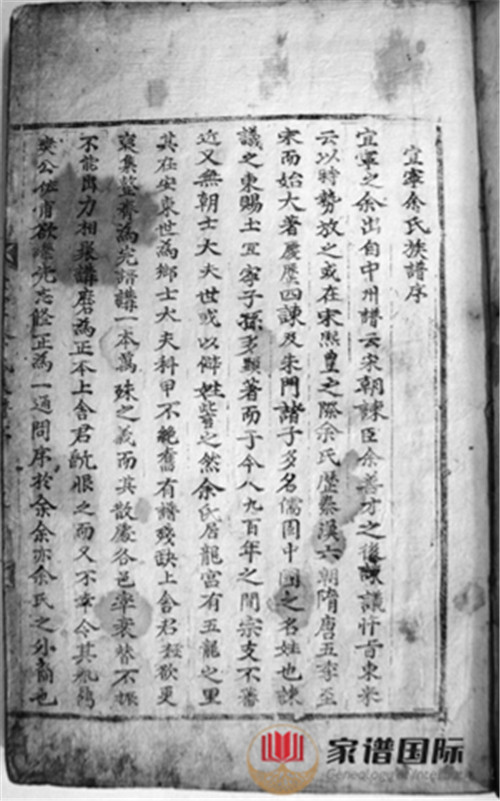 宜寧余氏族譜序
宜寧之余出自中州譜云宋朝諫臣余善才之後諫議忤旨東来
云以時勢放之或在宋熙豊之際余氏歷秦漢六朝隋唐五季至
宋而始大著慶歷四諫及朱門諸子多名儒固中國之名姓也諫
議之東賜土宜寧子孫多顯著而于今八九百年之間宗支不蕃
近又無朝士大夫世或以僻姓訾之然余氏居龍宮有五龍之里
其在安東世為鄉士大夫科甲不絶舊有譜殘缺上舍君猛欲更
裒集整齊為完譜講一本萬殊之義而其散處各邑率衰替不振
不能齊力相與講磨為正本上舍君既恨之而又不幸今其
公佐甫欲繼先志釐正為一通問序於余余亦余氏之外裔也
家谱国际
Genealogy International